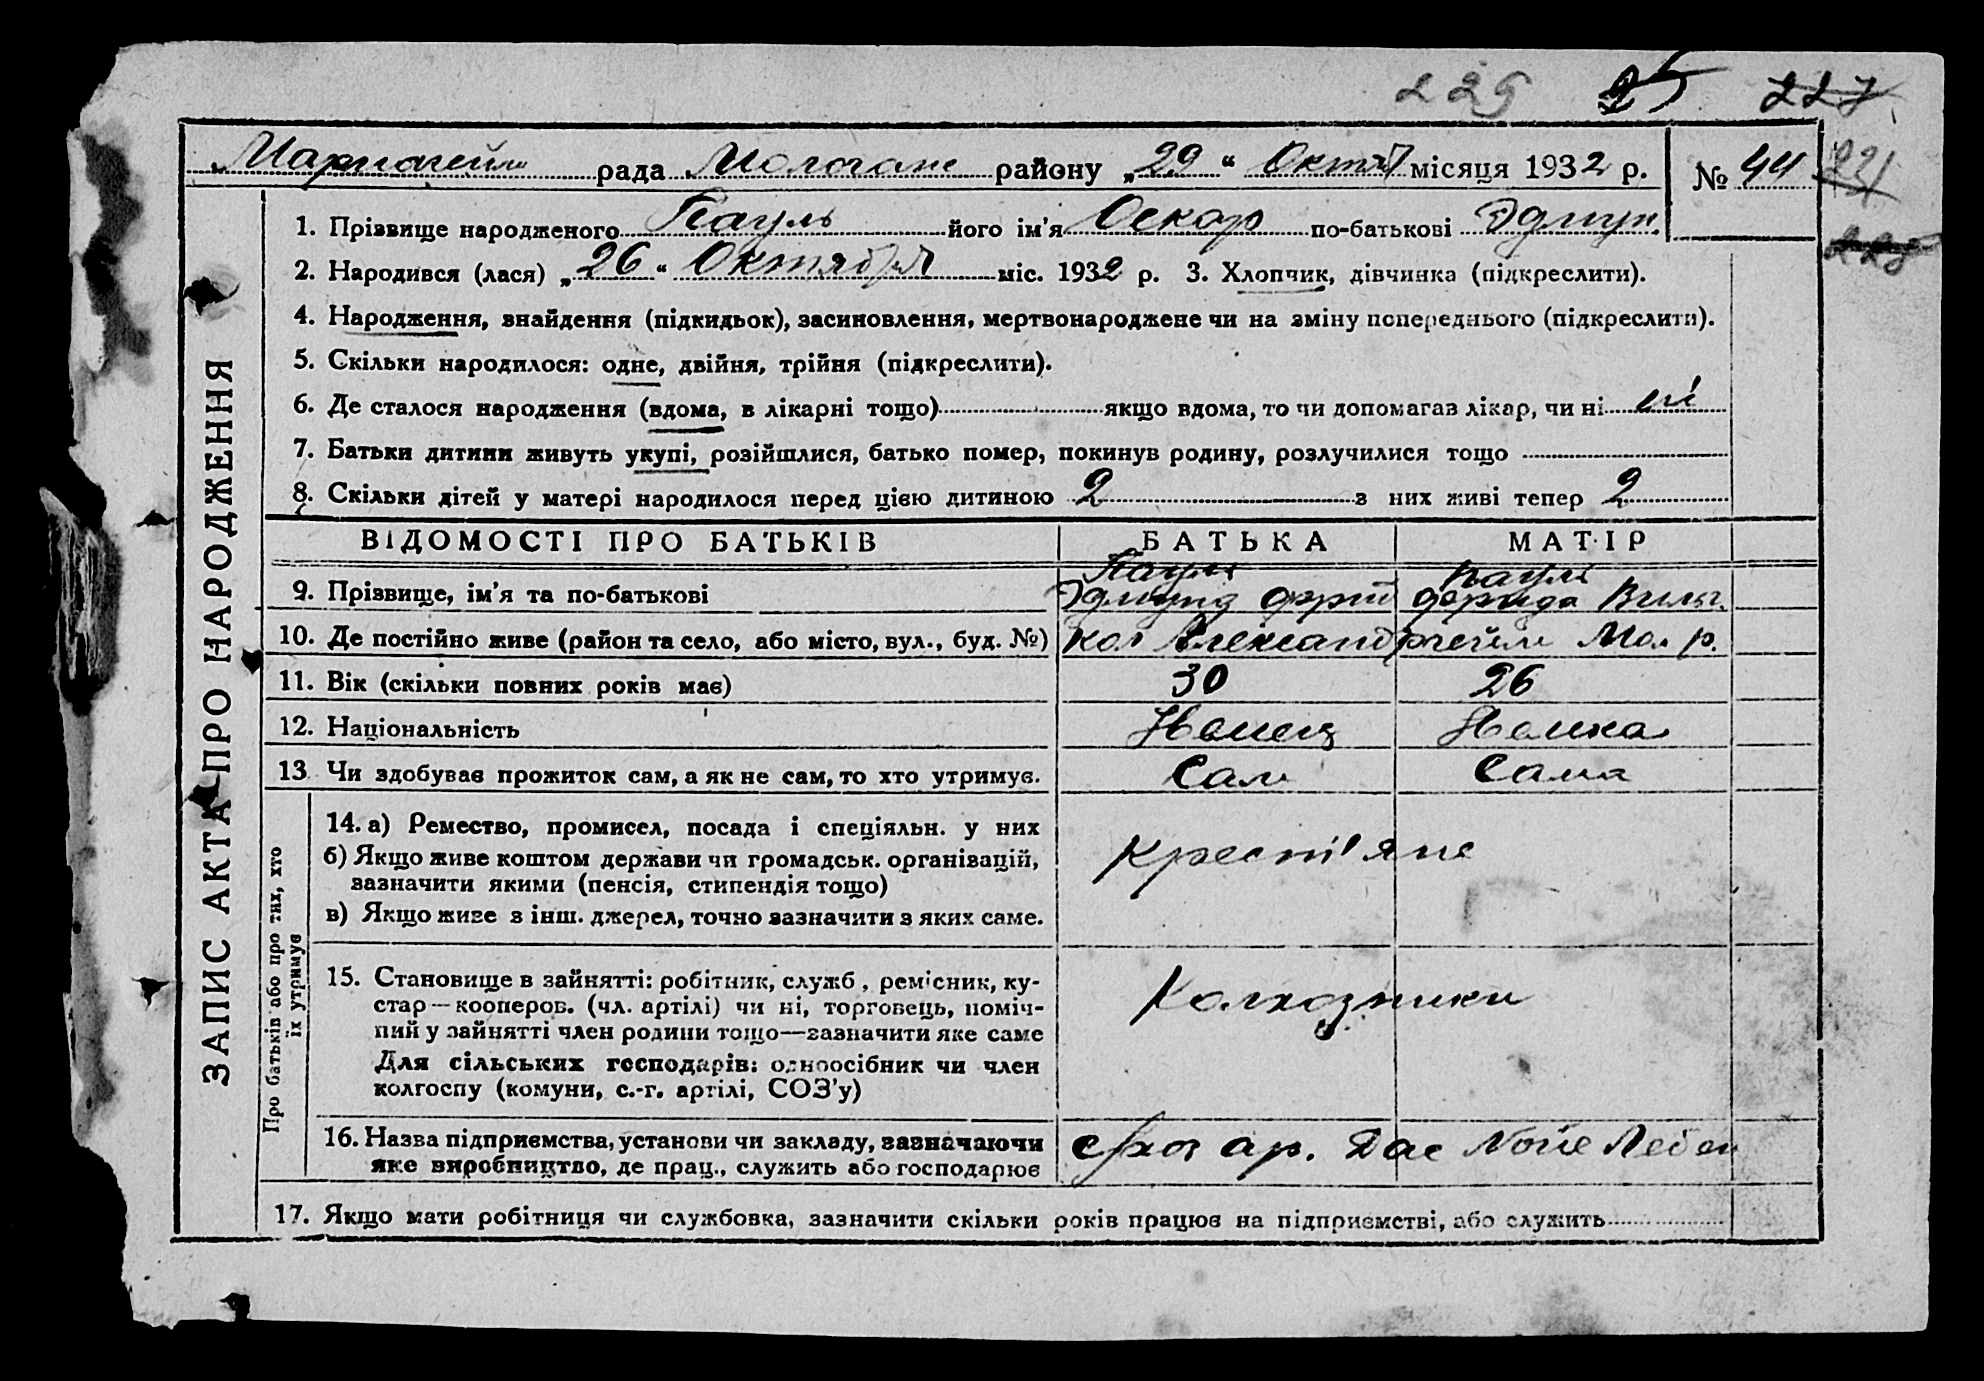 229 25 227
Мариагейм рада Молочан району „29“ Октяб місяця 1932 р. № 44 221
1. Прізвище народженого Пауль його ім'я Оскар по-батькові Эдмун.
2. Народився (лася) „26“ Октября міс. 1932 р. 3. Хлопчик, дівчинка (підкреслити).
4. Народження, знайдення (підкидьок), засиновлення, мертвонароджене чи на зміну попереднього (підкреслити).
5. Скільки народилося: одне, двійня, трійня (підкреслити).
6. Де сталося народження (вдома, в лікарні тощо) якщо вдома, то чи допомагав лікар, чи ні ні
7. Батьки дитини живуть укупі, розійшлися, батько помер, покинув родину, розлучилися тощо
8. Скільки дітей у матері народилося перед цією дитиною 2 з них живі тепер 2
ЗАПИС АКТА ПРО НАРОДЖЕННЯ
ВІДОМОСТІ ПРО БАТЬКІВ БАТЬКА МАТІР
Пауль Пауль
9. Прізвище, ім'я та по-батькові Эдмунд Фрит Фрида Вильг.
10. Де постійно живе (район та село, або місто, вул., буд. №) Кол Александргейм Мол р.
11. Вік (скільки повних років має) 30 26
12. Національність Немец Немка
13 Чи здобуває прожиток сам, а як не сам, то хто утримує. Сам Сама
Про батьків або про тих, хто
їх утримує
14. а) Ремество, промисел, посада і спеціяльн. у них
б) Якщо живе коштом держави чи громадськ. організацій, Крест'яне
зазначити якими (пенсія, стипендія тощо)
в) Якщо живе з інш. джерел, точно зазначити з яких саме.
15. Становище в зайнятті: робітник, служб, ремісник, ку-
стар—коопероб. (чл. артілі) чи ні, торговець, поміч- Колхозники
ний у зайнятті член родини тощо—зазначити яке саме
Для сільських господарів: одноосібник чи член
колгоспу (комуни, с.-г. артілі, СОЗ'у)
16. Назва підприємства, установи чи закладу, зазначаючи с/хоз ар. Дас Нойе Лебен
яке виробництво, де прац., служить або господарює
17. Якщо мати робітниця чи службовка, зазначити скільки років працює на підприємстві, або служить